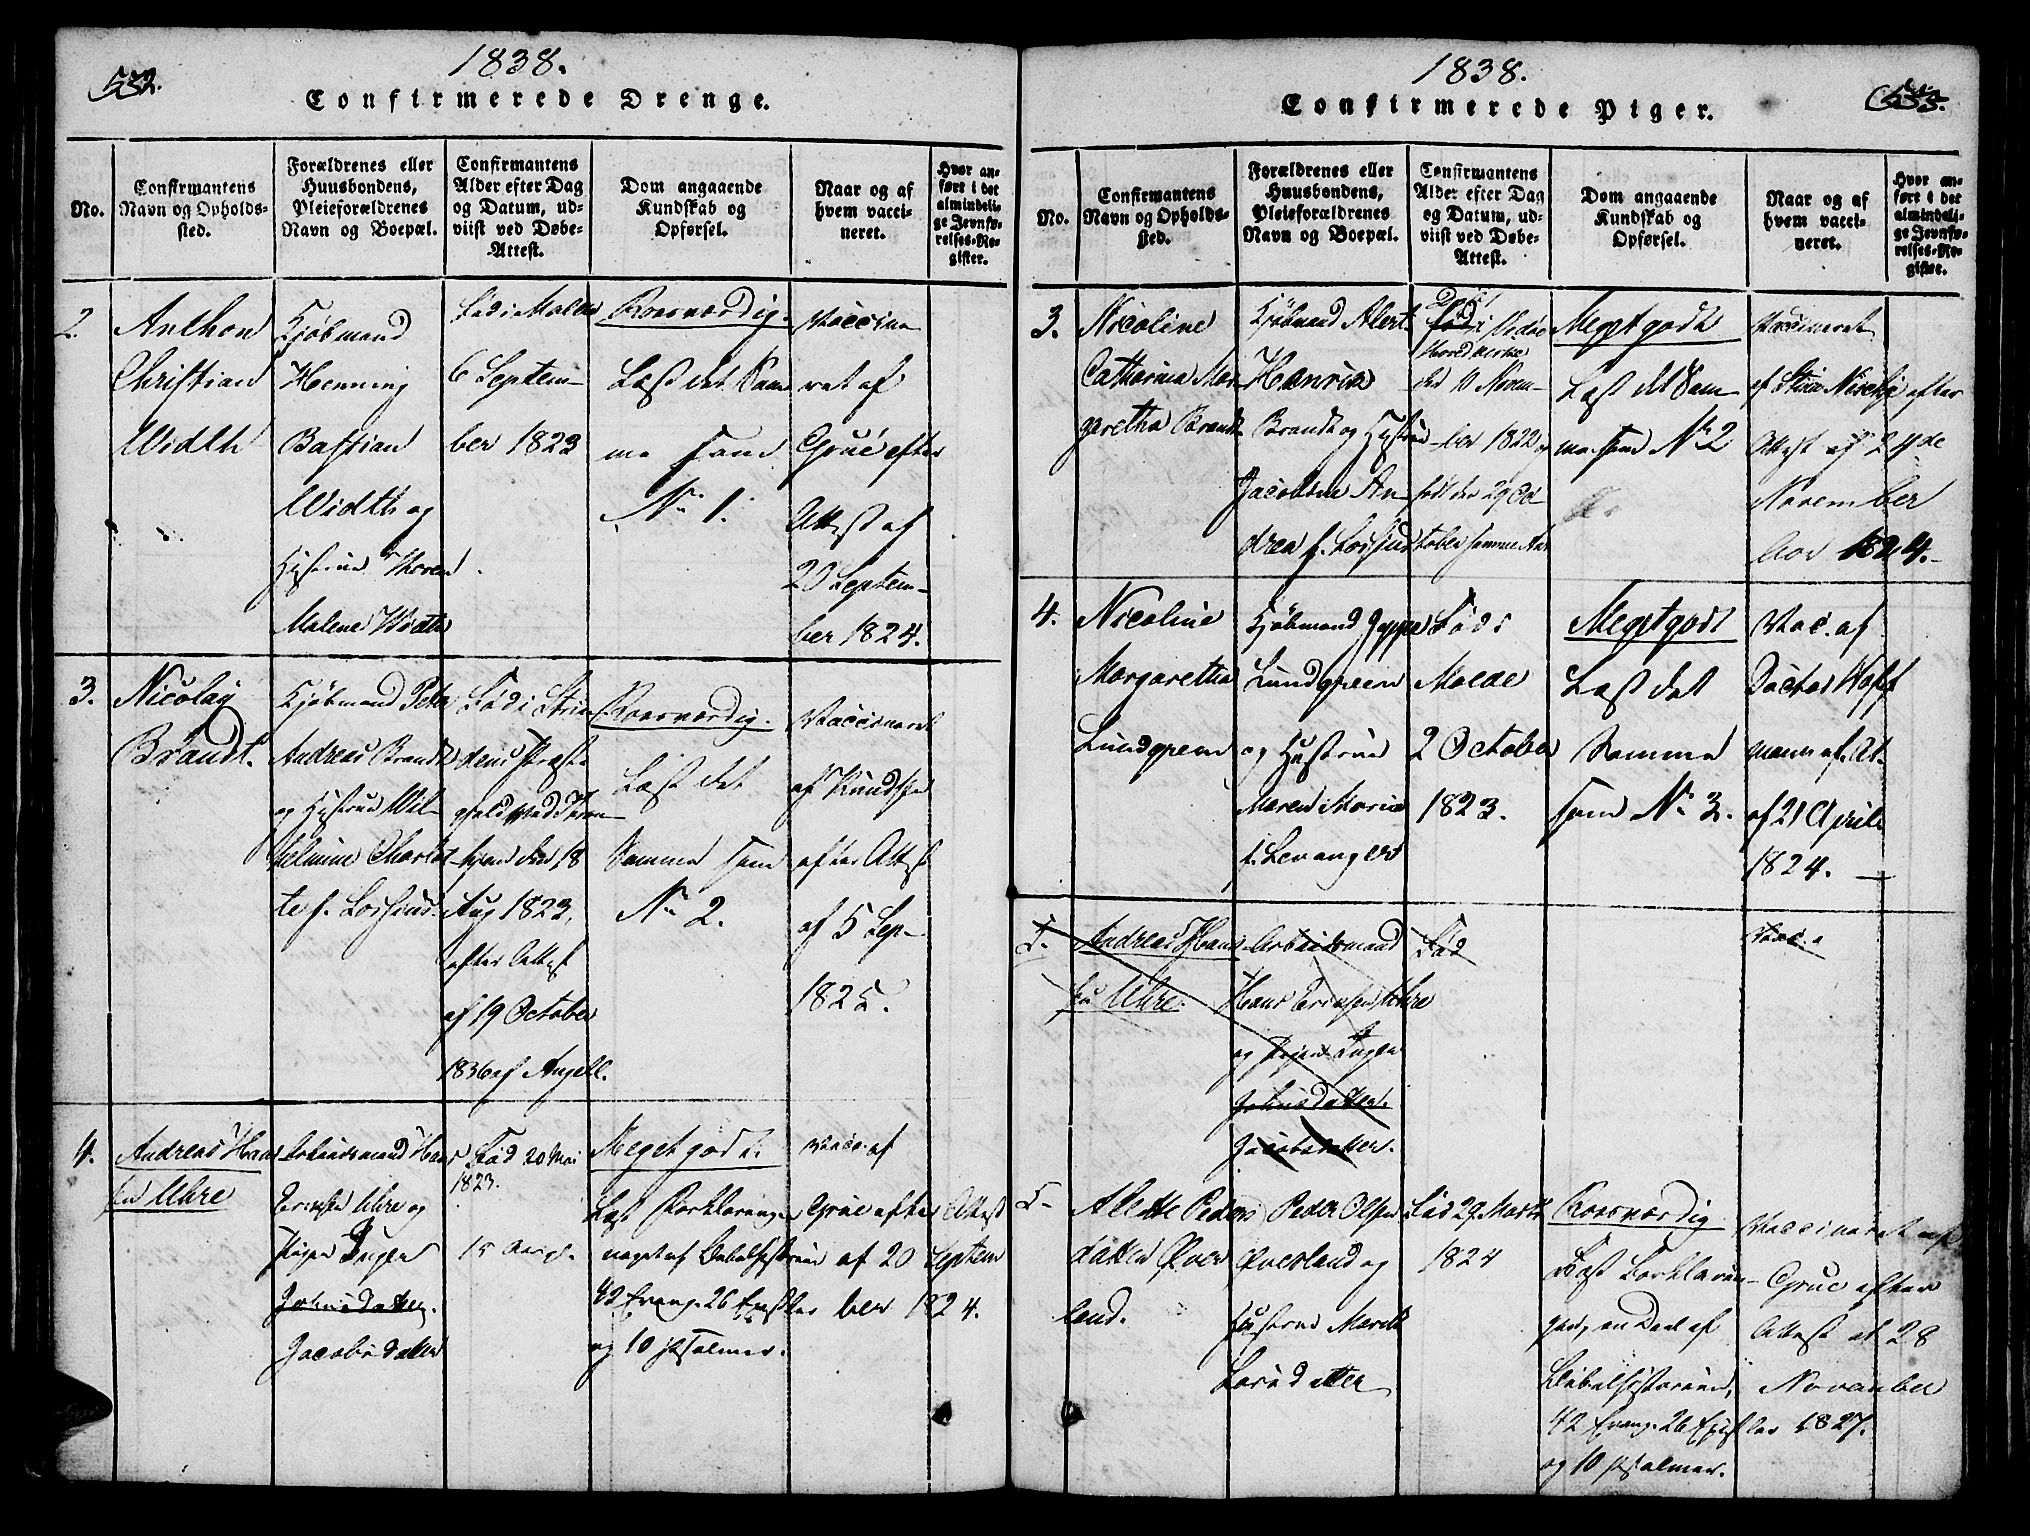 532.
1838.
Confirmerede Drenge.
No.
Confirmantens
Navn og Opholds-
sted.
Forældrenes eller
Huusbondens,
Pleieforældrenes
Navn og Boepæl.
Confirmantens
Alder efter Dag
og Datum, ud-
viist ved Døbe-
Attest.
Dom angaaende
Kundskab og
Opførsel.
Naar og af
hvem vacci-
neret.
Hvor an-
ført i det
almindeli-
ge Jevnfø-
relses-Re-
gister.
2.
Anthon
Christian
Width
Kjøbmand
Henning
Bastian
Width og
Hustrue Maren
Malene Width
Fød i Molde
6 Septem-
ber 1823
Roesværdig.
Læst det Sam
me som
No 1.
Vaccine
ret af
Grue efter
Attest af
20 Septem-
ber 1824.
3.
Nicolay
Brandt.
Kjøbmand Peter
Andreas Brandt
og Hustrue Wil-
helmine Charlot-
te f. Lossius.
Fød i Strin
dens Præste
gjeld ved Tron
hjem den 18
Aug 1823,
efter Attest
af 19 October
1836 af Angell.
Roesværdig.
Læst det
Samme som
No 2.
Vaccineret
af Knudsen
efter Attest
af 5 Sep-
1825.
4.
Andreas Han
sen Uhre
Arbeidsmand Hans
Erichsen Uhre og
Pigen Inger
Johnsdatter.
Jacobsdatter
Fød 20 Mai
1823.
15 Aar gl.
Meget godt:
Læst Forklaringen
noget af Bibelhistorien
42 Evang. 26 Epistler
og 10 Psalmer.
Vacc. af
Grue efter Attest
af 20 Septem
ber 1824.
1838.
Confirmerede Piger.
533.
No.
Confirmantens
Navn og Opholds-
sted.
Forældrenes eller
Huusbondens,
Pleieforældrenes
Navn og Boepæl.
Confirmantens
Alder efter Dag
og Datum, ud-
viist ved Døbe-
Attest.
Dom angaaende
Kundskab og
Opførsel.
Naar og af
hvem vacci-
neret.
Hvor an-
ført i det
almindeli-
ge Jevnfø-
relses-Re-
gister.
3.
Nicoline
Catharina Mar
garetha Brandt
Kjøbmand Alert
Henrich
Brandt og Hustrue
Jacobine An-
drea f. Lossius
Fød i Vedøe
Hovedkirke
den 10 Novem-
ber 1822 og
født den 29 Oc
tober samme Aar
Meget godt
Læst det Sam-
me som No 2
Vaccineret
af Stine efter
Attest af 29de
November
Aar 1824.
4.
Nicoline
Margaretha
Lundgreen
Kjøbmand Jeppe
Lundgreen
og Hustrue
Maren Marie
f. Levanger
Fød i
Molde
2 October
1823.
Meget godt
Læst det
Samme
som No 3.
Vac. af
Doctor Hoff
mann af. At.
af 21 April
1824.
5.
Andreas Han
sen Uhre.
Arbeidsmand
Hans Erichsen Uhre
og Pigen Inger
Johnsdatter.
Jacobsdatter.
Fød
Vacc. a
5.
Alette Peders
datter Øver
land.
Peder Olsen
Øverland og
Hustrue Marit
Larsdatter
Fød 29 Marts
1824
Roesværdig
Læst Forklarin-
gen, en Deel af
Bibelhistorien,
42 Evang. 26 Epist
ler
og 10 Psalmer.
Vaccineret af
Grue efter
Attest af 28
November
1827.